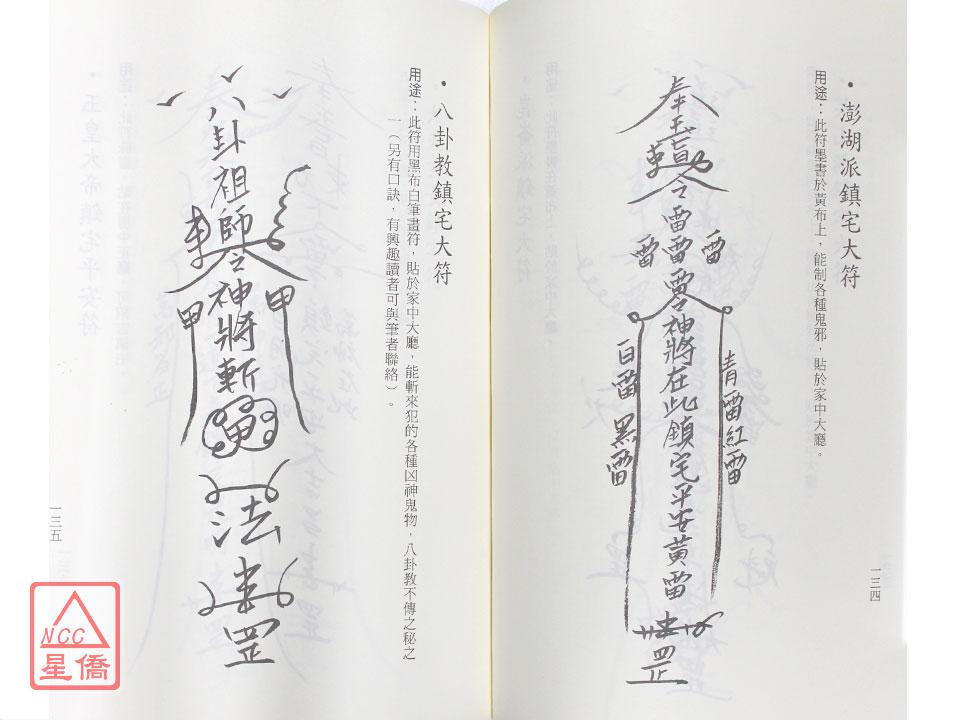 •澎湖派鎮宅大符
用途：此符墨書於黃布上，能制各種鬼邪，貼於家中大廳。
奉玉旨令雷雷雷令神將在此鎮宅平安黃雷罡
雷
雷
青雷紅雷
白雷黑雷
一三四
•八卦教鎮宅大符
用途：此符用黑布白筆畫符，貼於家中大廳，能斬來犯的各種凶神鬼物，八卦教不傳之秘之
一（另有口訣，有興趣讀者可與筆者聯絡）。
八卦祖師令神將斬
甲
甲
法
罡
一三五
NCC
星僑